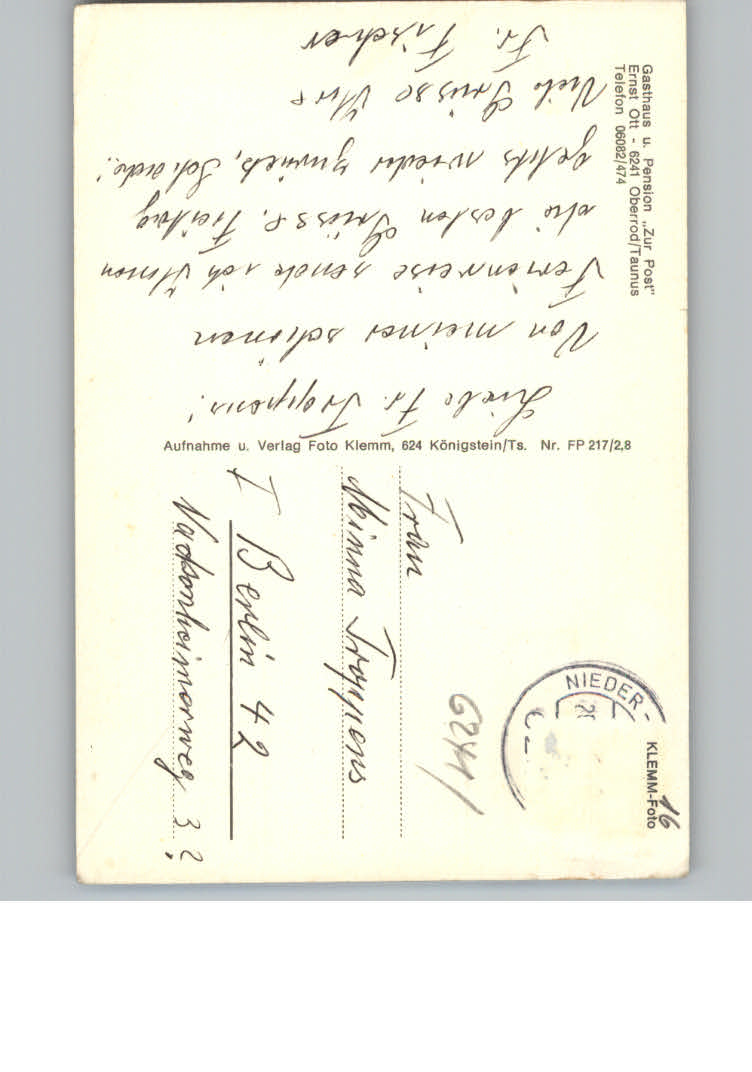 Gasthaus u. Pension „Zur Post"
Ernst Ott - 6241 Oberrod/Taunus
Telefon 06082/474
Liebe Fr. Troppens!
Von meiner schönen
Ferienreise sende ich Ihnen
die besten Grüsse, Freitag
gehts wieder zurück, Schade!
Viele Grüsse Ihre
Fr. Fischer
Aufnahme u. Verlag Foto Klemm, 624 Königstein/Ts. Nr. FP 217/2,8
NIEDER-
KLEMM-Foto
16
6241
Frau
Minna Troppens
I Berlin 42
3